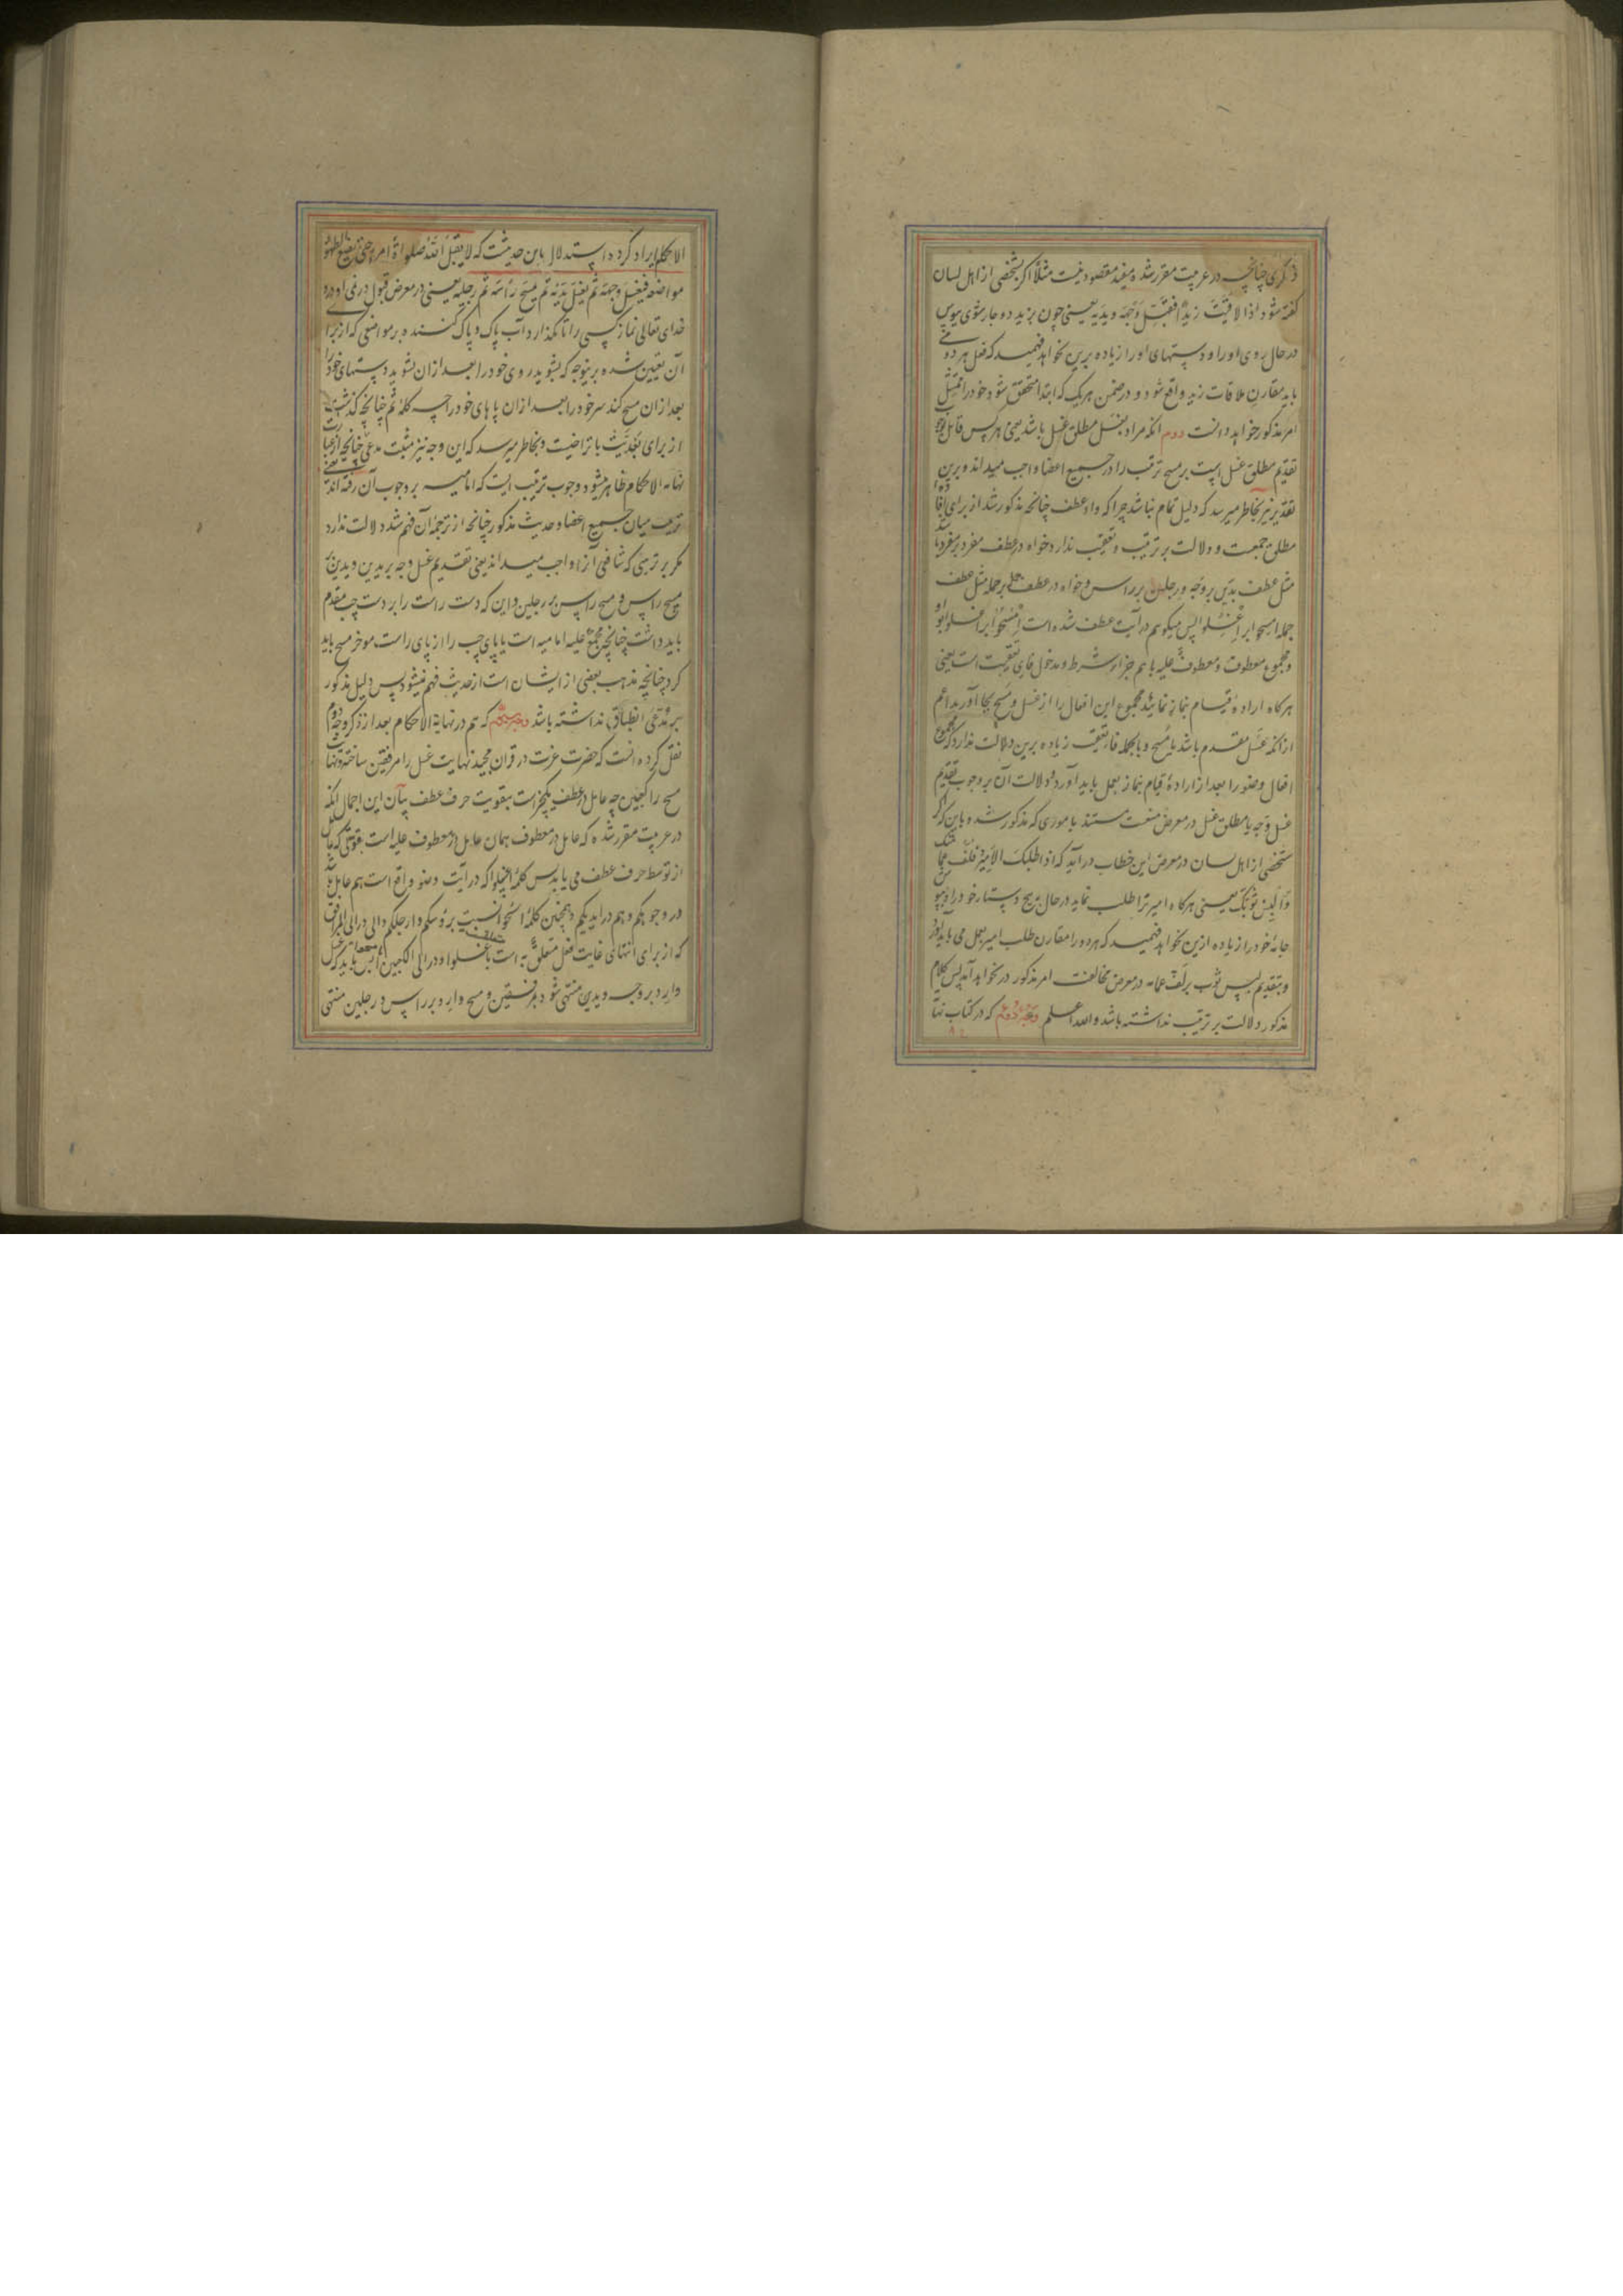 ذکری چنانچه در عربیت مقرر شده مفید مقصود نیست مثلا اگر شخصی از اهل لسان
گفته شود اذا لاقیت زیدا فقبل وجهه ویدیه یعنی چون بزید دوچار شوی ببوس
در حال روی او را و دستهای او را زیاده برین نخواهد فهمید که فعل هر دو
باید مقارن ملاقات زید واقع شود و در ضمن هر یک که ابتدا متحقق شود خود را ممتثل
امر مذکور خواهد دانست دوم آنکه مراد بغسل مطلق غسل باشد یعنی هر کس قائل بوجوب
تقدیم مطلق غسل است بر مسح ترتیب را در جمیع اعضا واجب میداند و برین
تقدیر نیز بخاطر میرسد که دلیل تمام نباشد چرا که واو عطف چنانچه مذکور شد از برای افاده
مطلق جمعیت و دلالت بر ترتیب و تعقیب ندارد خواه در عطف مفرد بر مفرد باشد
مثل عطف یدین بر وجه و رجلین بر راس و خواه در عطف جمله بر جمله مثل عطف
جمله امسحوا بر اغسلوا پس میگویم در آیت عطف شده است امسحوا بر اغسلوا
و مجموع معطوف و معطوف علیه با هم جزاء شرط و مدخول فای تعقیبست یعنی
هرگاه اراده قیام نماز نمائید مجموع این افعال را از غسل و مسح بجا آورید اعم
از آنکه غسل مقدم باشد یا مسح و بالجمله فاء تعقیب زیاده برین دلالت ندارد که مجموع
افعال وضو را بعد از اراده قیام بنماز بعمل باید آورد و دلالت آن بر وجوب تقدیم
غسل وجه یا مطلق غسل در معرض منعست مستند باموری که مذکور شد و باین که اگر
شخصی از اهل لسان در معرض این خطاب درآید که اذا طلبک الامیر فلف عمامتک
و البس ثوبک یعنی هرگاه امیر ترا طلب نماید در حال بپیچ دستار خود را و بپوش
جامه خود را زیاده ازین نخواهد فهمید که هر دو را مقارن طلب امیر بعمل می باید آورد
و بتقدیم لبس ثوب بر لف عمامه در معرض مخالفت امر مذکور در نخواهد آمد پس کلام
مذکور دلالت بر ترتیب نداشته باشد والله اعلم وجه دوم که در کتاب نهایة
الاحکام ایراد کرده استدلال باین حدیثست که لا یقبل الله صلواة امرء حتی یضع الطهور
مواضعه فیغسل وجهه ثم یغسل یدیه ثم یمسح رأسه ثم رجلیه یعنی در معرض قبول در نمی آورد
خدای تعالی نماز کسی را تا نگذارد آب پاک و پاک کننده بر مواضعی که از برای
آن تعیین شده برینوجه که بشوید روی خود را بعد از ان بشوید دستهای خود را
بعد از ان مسح کند سر خود را بعد از ان پاهای خود را چه کلمه ثم چنانچه گذشت
از برای بعدیت با تراخیست و بخاطر میرسد که این وجه نیز مثبت مدعی چنانچه از عبارت
نهایه الاحکام ظاهر میشود وجوب ترتیب است که امامیه بر وجوب آن رفته اند یعنی
ترتیب میان جمیع اعضا و حدیث مذکور چنانچه از ترجمه آن فهم شد دلالت ندارد
مگر بر ترتیبی که شافعی آنرا واجب میداند یعنی تقدیم غسل وجه بر یدین و یدین بر
مسح راس و مسح راس بر رجلین و این که دست راست را بر دست چپ مقدم
باید داشت چنانچه مجمع علیه امامیه است یا پای چپ را از پای راست موخر مسح باید
کرد چنانچه مذهب بعضی از ایشان است از حدیث فهم نمیشود پس دلیل مذکور
بر مدعی انطباق نداشته باشد وجه سیم که هم در نهایة الاحکام بعد از ذکر وجه دوم
نقل کرده آنست که حضرت عزت در قران مجید نهایت غسل را مرفقین ساخته و نهایت
مسح را کعبین چه عامل در عطف یکچیز است بتقویت حرف عطف بیان این اجمال آنکه
در عربیت مقرر شده که عامل در معطوف همان عامل در معطوف علیه است بقوتی که عامل
از توسط حرف عطف می یابد پس کلمه اغسلوا که در آیت وضو واقع است هم عامل باشد
در وجوهکم و هم در ایدیکم و همچنین کلمه امسحوا نسبت برؤسکم و ارجلکم و الی در الی المرافق
که از برای انتهای غایت فعل متعلق به است باغسلوا و در الی الکعبین بامسحوا پس باید که غسل
وارد بر وجه و یدین منتهی شود بمرفقین و مسح وارد بر راس و رجلین منتهی